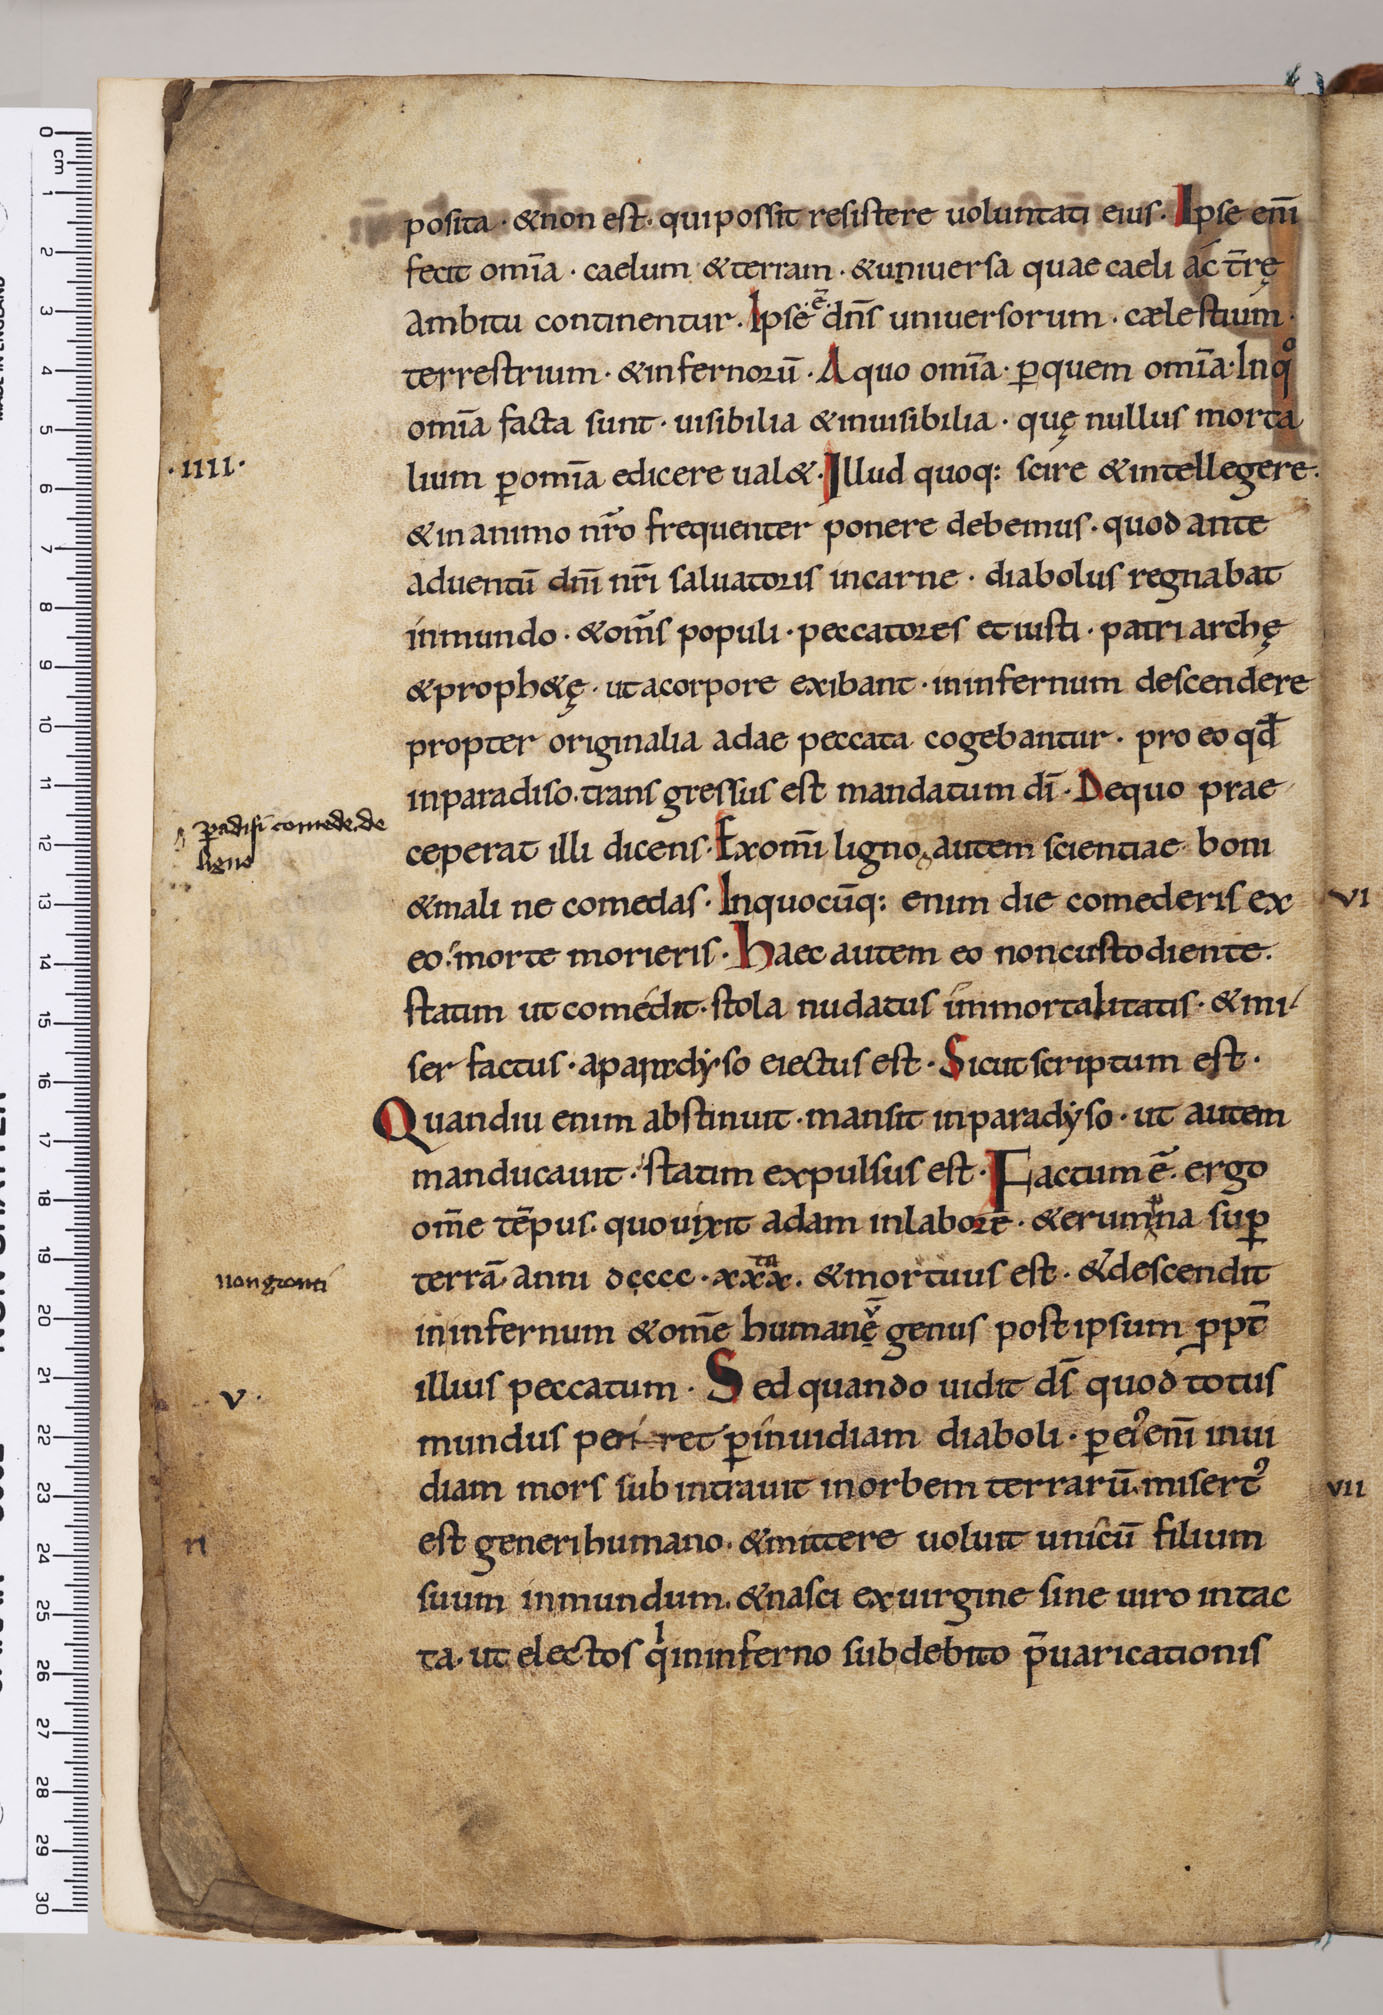 posita · & non est · qui possit resistere uoluntati eius · Ipse enī
fecit omīa · caelum & terram · & uniuersa quae caeli ac t̄rę
ambitu continentur · Ipse ē dn̄s uniuersorum · cælestium ·
terrestrium · & infernorū · A quo omīa · ꝑ quem omīa · In qͦ
omīa facta sunt · uisibilia & inuisibilia · quę nullus morta
·IIII·
lium ꝑ omīa edicere ual& · Illud quoq: scire & intellegere ·
& in animo nr̄o frequenter ponere debemus · quod ante
aduentū dn̄i nr̄i saluatoris in carne · diabolus regnabat
in mundo · & om̄s populi · peccatores et iusti · patriarchę
& proph&ę · ut a corpore exibant · in infernum descendere
propter originalia adae peccata cogebantur · pro eo qđ
in paradiso · transgressus est mandatum dī · De quo prae
ꝑadisi comede · de
ligno
ceperat illi dicens · Ex omī ligno autem scientiae boni
& mali ne comedas · In quocūq: enim die comederis ex
VI
eo · morte morieris · Haec autem eo non custodiente ·
statim ut comedit · stola nudatus immortalitatis · & mi
ser factus · a paradyso eiectus est · Sicut scriptum est ·
Quandiu enim abstinuit · mansit in paradyso · ut autem
manducauit · statim expulsus est · Factum ē ergo
om̄e tēpus · quo uixit adam in labore · & erumna suꝑ
terrā anni dcccc · xxx ta · & mortuus est · & descendit
in infernum & om̄e humanę genus post ipsum ꝓpt̄
illius peccatum · Sed quando uidit ds̄ quod totus
V ·
mundus peri ret ꝑ inuidiam diaboli · ꝑ ei᾽ enī inui
diam mors subintrauit in orbem terrarū · misert᾽
VII
est generi humano · & mittere uoluit unicū filium
suum in mundum · & nasci ex uirgine sine uiro intac
ta · ut electos qͥ in inferno sub debito p̄uaricationis
0 cm 1 2 3 4 5 6 7 8 9 10 11 12 13 14 15 16 17 18 19 20 21 22 23 24 25 26 27 28 29 30